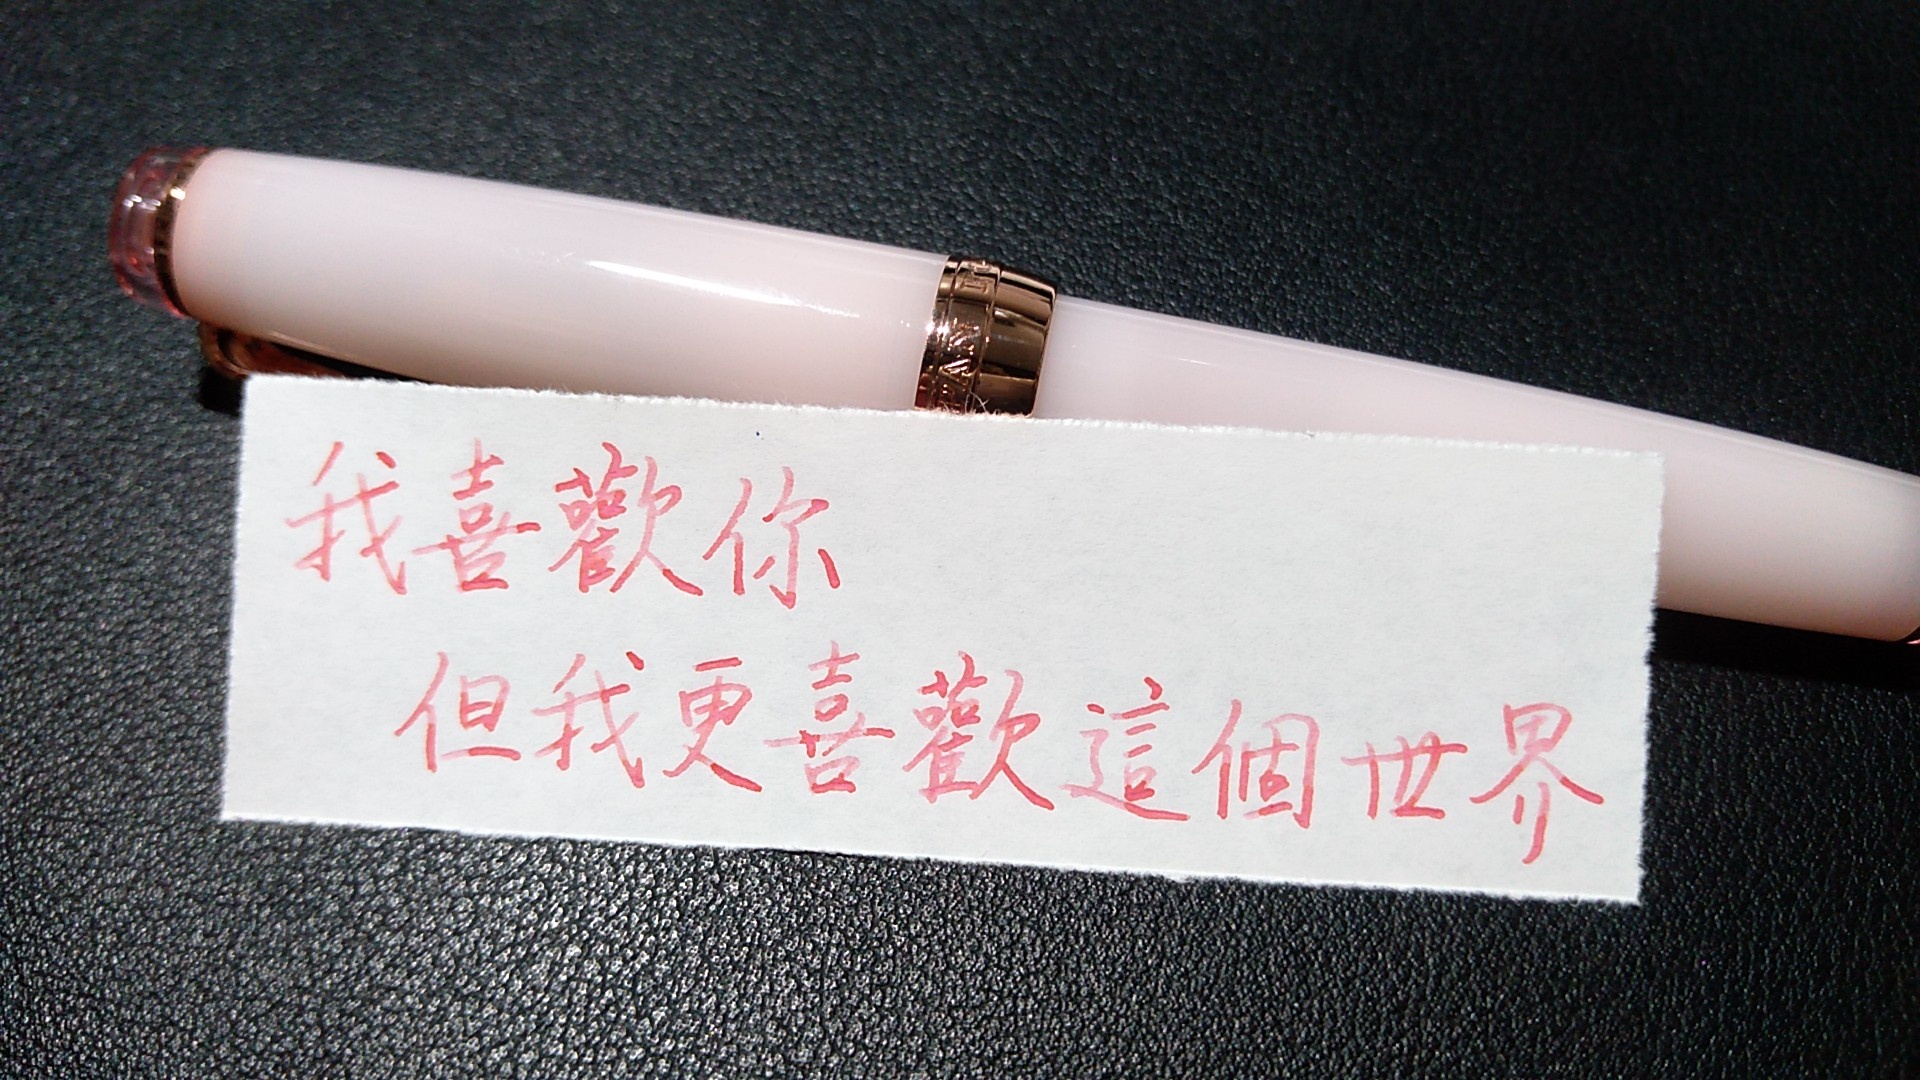 我喜歡你
但我更喜歡這個世界